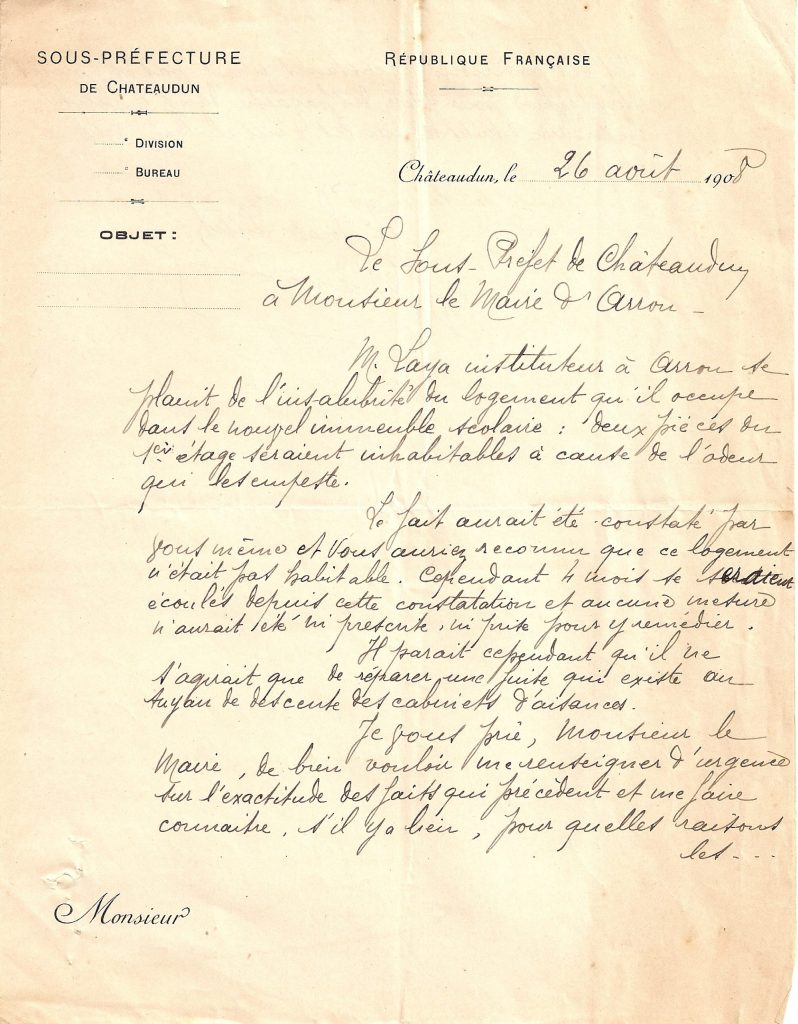 SOUS-PRÉFECTURE
DE CHATEAUDUN
e DIVISION
e BUREAU
OBJET :
RÉPUBLIQUE FRANÇAISE
Châteaudun, le 26 août 1908
Le Sous-Préfet de Châteaudun
à Monsieur le Maire d'Arrou -
M. Laya instituteur à Arrou se
plaint de l'insalubrité du logement qu'il occupe
dans le nouvel immeuble scolaire : deux pièces du
1er étage seraient inhabitables à cause de l'odeur
qui les empeste.
Le fait aurait été constaté par
vous même et vous auriez reconnu que ce logement
n'était pas habitable. Cependant 4 mois se seraient
écoulés depuis cette constatation et aucune mesure
n'aurait été ni prescrite, ni prise pour y remédier.
Il parait cependant qu'il ne
s'agirait que de réparer une fuite qui existe au
tuyau de descente des cabinets d'aisances.
Je vous prie, Monsieur le
Maire, de bien vouloir me renseigner d'urgence
sur l'exactitude des faits qui précèdent et me faire
connaitre, s'il y a lieu, pour quelles raisons
les - - -
Monsieur